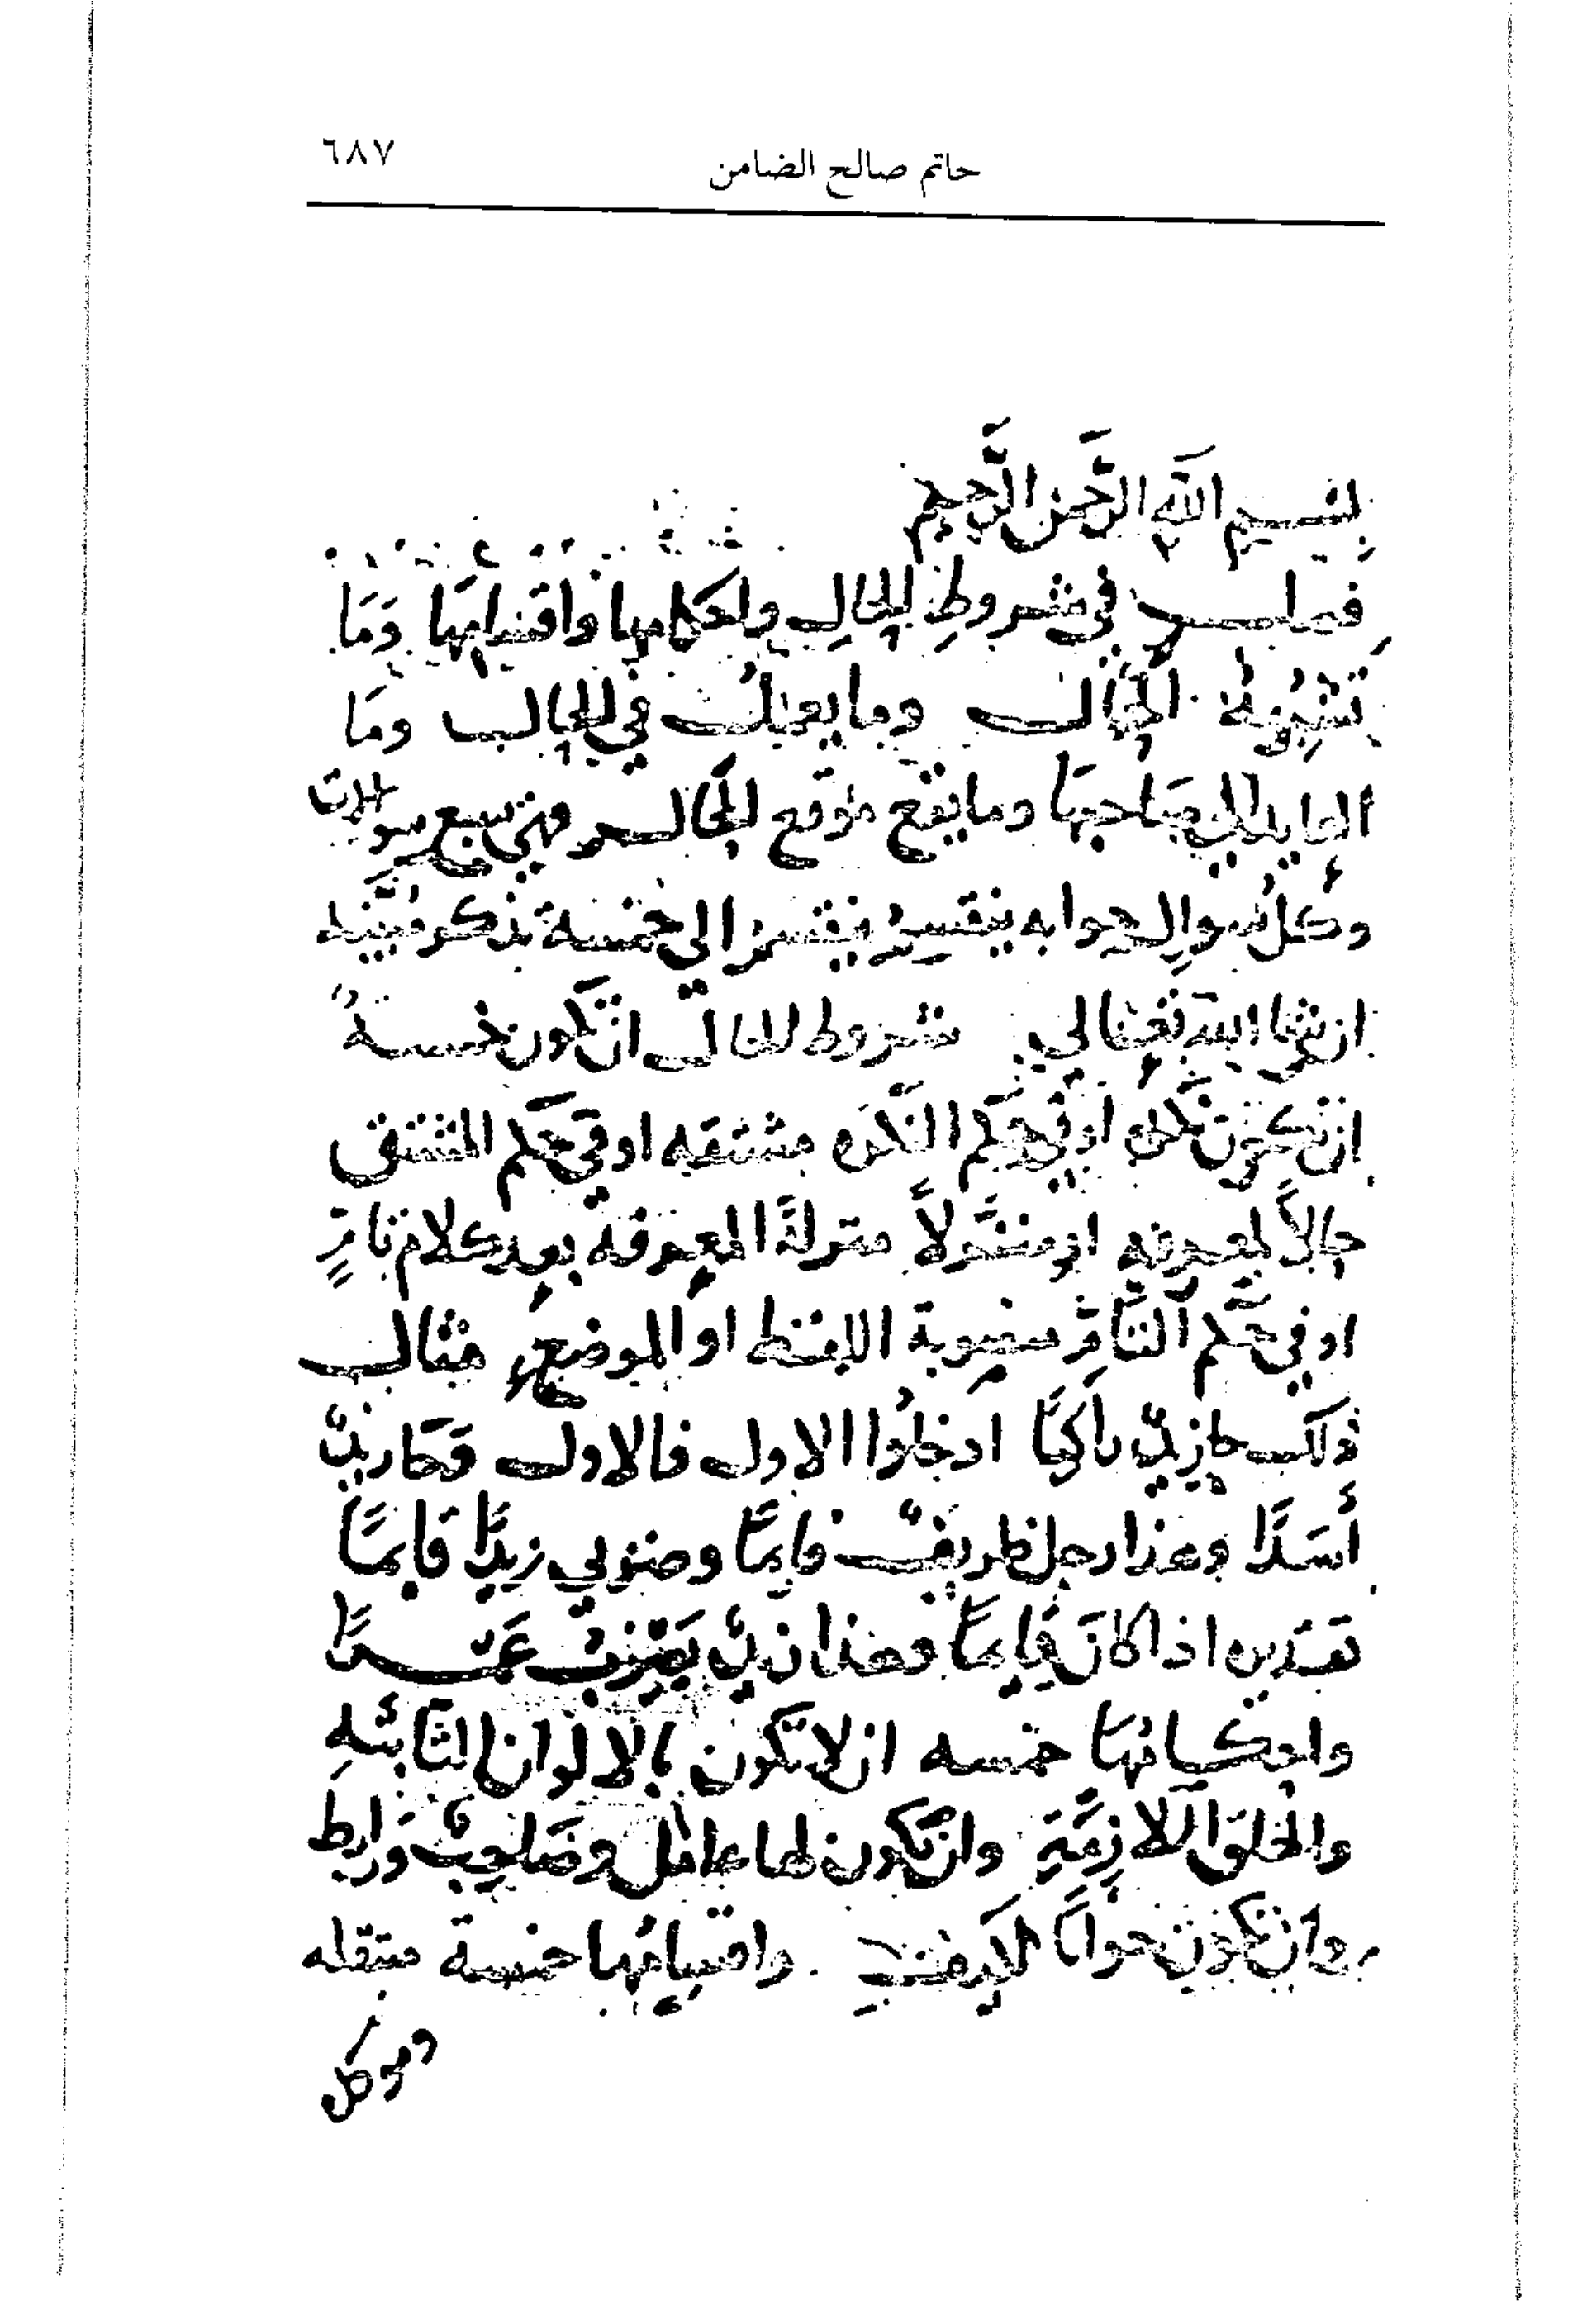 حاتم صالح الضامن ٦٨٧
بِسْــمِ اللَّهِ الرَّحْمَنِ الرَّحِيمِ
فصل في شروطِ الحالِ واحكامها واقسامها وَمَا
تَشْبِهُهُ الحال وما يعمل في الحال ومَا
العايد الى صَاحبهَا وما يقع موقع الحال فهي سبع سوالات
وكل سوالٍ جوابه ينقسم الى خمسة نذكر مبينه
ان شا الله تعالي شروط الحال ان تكون خمسة
ان تكون نكره او في حكم النكره مشتقه او في حكم المشتق
حالاً لمعرفه او منزلاً منزلة المعرفة بعد كلام تامٍ
او في حكم التَّامِّ منصوبة اللفظ او الموضع مثال
ذلك جا زيدٌ راكبًا ادخلُوا الاول فالاول وكَر زيدٌ
أسَدًا وهذا رجل ظريفٌ قايمًا وضربي زيدًا قايمًا
تقديره اذا كانَ قايمًا وهذا زيدٌ يَضْرِبُ عَمْـــرًا
واحكامُهَا خمسه ان لا تكون بالالوان الثَّابتَهِ
والخلق اللازمَةِ وان تكون لها عامل وصَاحِبٌ ورَابط
وان تكون جوابًا لكيف واقسامُها خمسة منتقله